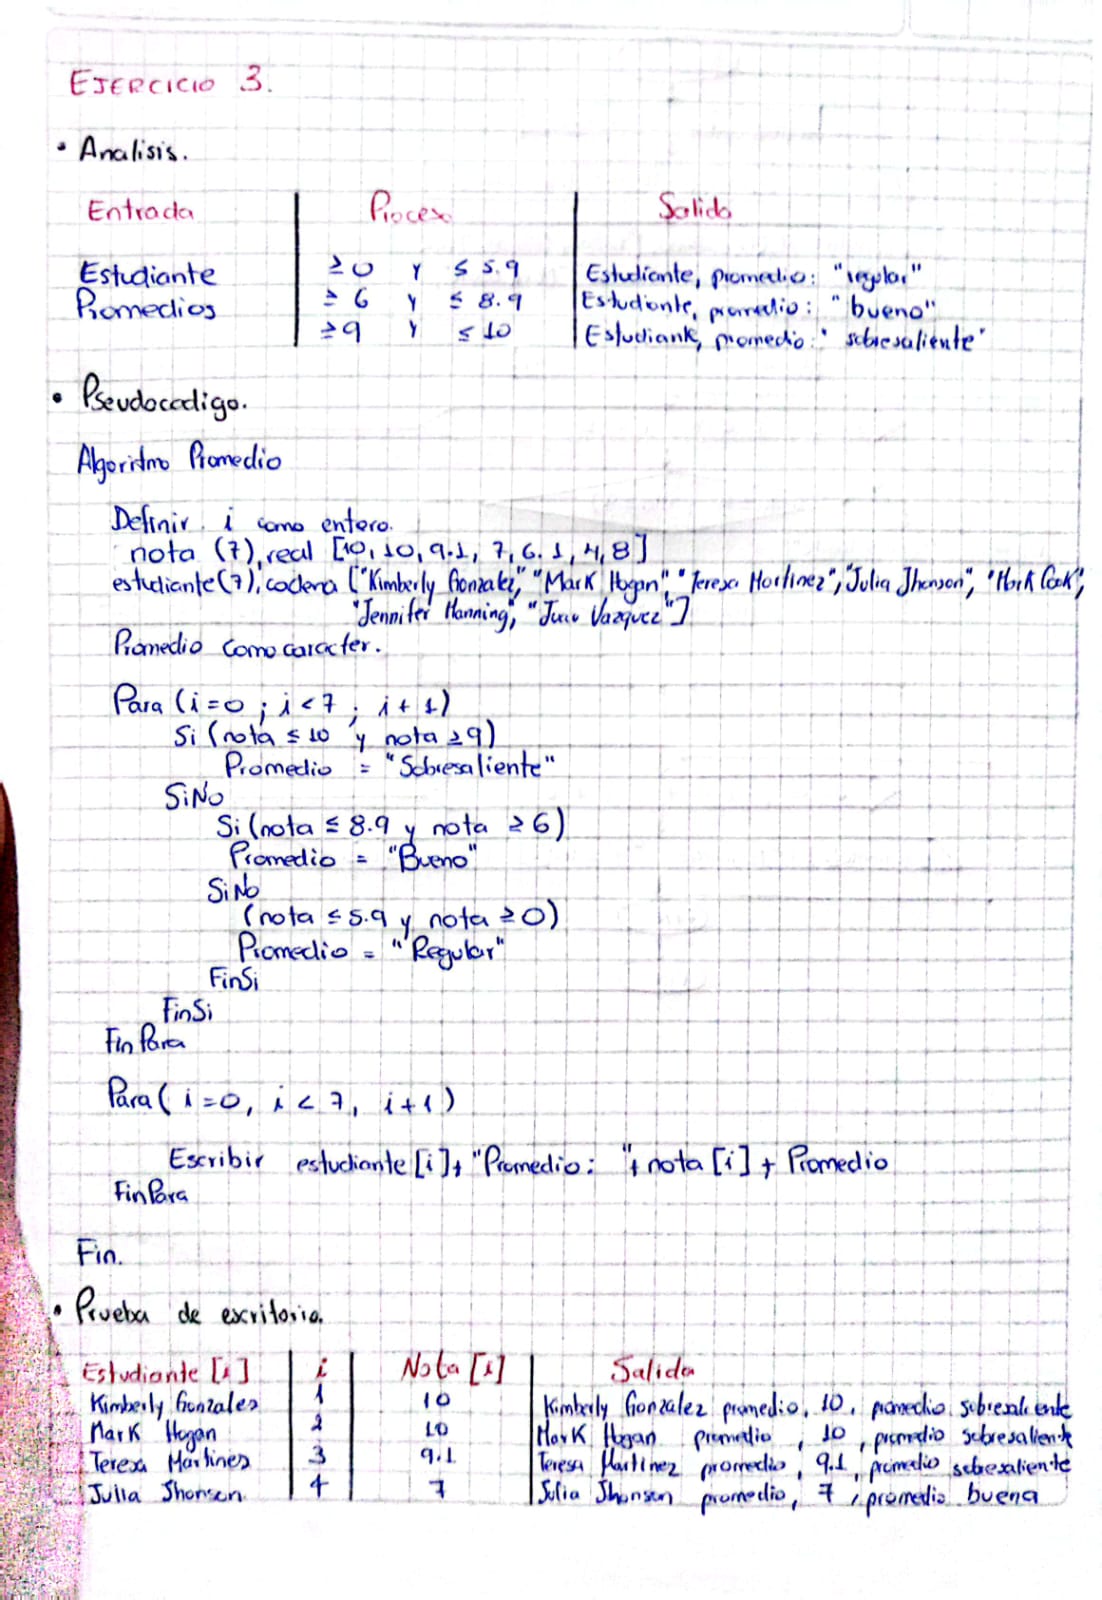 EJERCICIO 3.
• Analisis.
Entrada | Proceso | Salida
Estudiante | ≥ 0 y ≤ 5.9 | Estudiante, promedio: "regular"
Promedios | ≥ 6 y ≤ 8.9 | Estudiante, promedio: "bueno"
≥ 9 y ≤ 10 | Estudiante, promedio: "sobresaliente"
• Pseudocodigo.
Algoritmo Promedio
Definir i como entero.
nota (7), real [10, 10, 9.1, 7, 6.1, 4, 8]
estudiante(7), cadena ["Kimberly Gonzalez", "Mark Hogan", "Teresa Martinez", "Julia Jhonson", "Mark Cook",
"Jennifer Hanning", "Vazquez"]
Promedio como caracter.
Para (i=0 ; i < 7 ; i + 1)
Si (nota ≤ 10 y nota ≥ 9)
Promedio = "Sobresaliente"
SiNo
Si (nota ≤ 8.9 y nota ≥ 6)
Promedio = "Bueno"
SiNo
(nota ≤ 5.9 y nota ≥ 0)
Promedio = "Regular"
FinSi
FinSi
Fin Para
Para ( i=0, i < 7, i+1 )
Escribir estudiante [i] + "Promedio: "+ nota [i] + Promedio
FinPara
Fin.
• Prueba de escritorio.
Estudiante [i] | i | Nota [i] | Salida
Kimberly Gonzales | 1 | 10 | Kimberly Gonzalez promedio, 10, promedio sobresaliente
Mark Hogan | 2 | 10 | Mark Hogan promedio, 10, promedio sobresaliente
Teresa Martines | 3 | 9.1 | Teresa Martinez promedio, 9.1, promedio sobresaliente
Julia Jhonson | 4 | 7 | Julia Jhonson promedio, 7, promedio buena